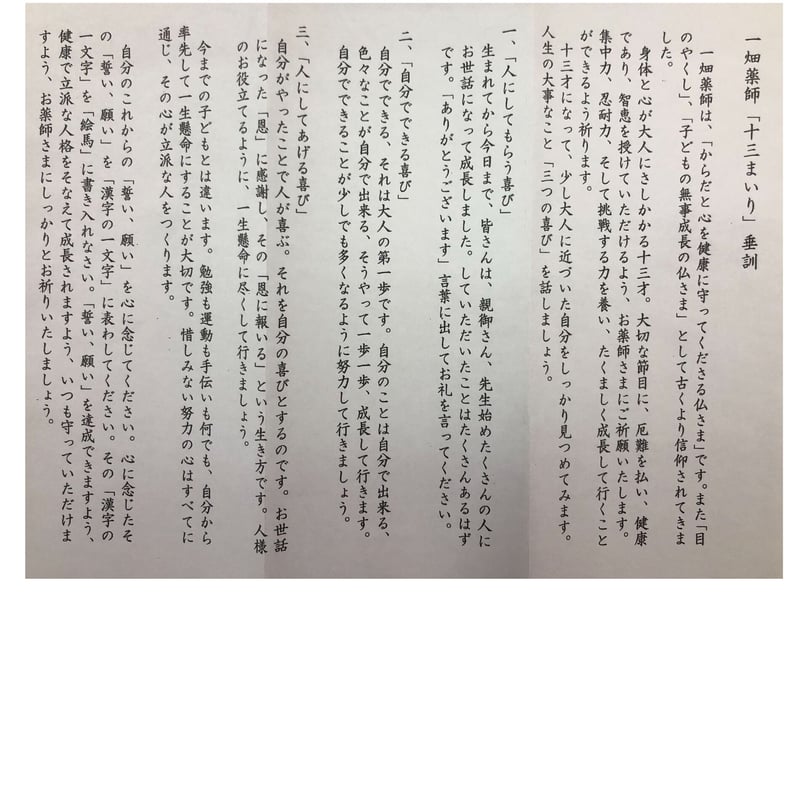 一畑薬師「十三まいり」垂訓
一畑薬師は、「からだと心を健康に守ってくださる仏さま」です。また「目
のやくし」、「子どもの無事成長の仏さま」として古くより信仰されてきま
した。
身体と心が大人にさしかかる十三才。大切な節目に、厄難を払い、健康
であり、智恵を授けていただけるよう、お薬師さまにご祈願いたします。
集中力、忍耐力、そして挑戦する力を養い、たくましく成長して行くこと
ができるよう祈ります。
十三才になって、少し大人に近づいた自分をしっかり見つめてみます。
人生の大事なこと「三つの喜び」を話しましょう。
一、「人にしてもらう喜び」
生まれてから今日まで、皆さんは、親御さん、先生始めたくさんの人に
お世話になって成長しました。していただいたことはたくさんあるはず
です。「ありがとうございます」言葉に出してお礼を言ってください。
二、「自分でできる喜び」
自分でできる、それは大人の第一歩です。自分のことは自分で出来る、
色々なことが自分で出来る、そうやって一歩一歩、成長して行きます。
自分でできることが少しでも多くなるように努力して行きましょう。
三、「人にしてあげる喜び」
自分がやったことで人が喜ぶ。それを自分の喜びとするのです。お世話
になった「恩」に感謝し、その「恩に報いる」という生き方です。人様
のお役立てるように、一生懸命に尽くして行きましょう。
今までの子どもとは違います。勉強も運動も手伝いも何でも、自分から
率先して一生懸命にすることが大切です。惜しみない努力の心はすべてに
通じ、その心が立派な人をつくります。
自分のこれからの「誓い、願い」を心に念じてください。心に念じたそ
の「誓い、願い」を「漢字の一文字」に表わしてください。その「漢字の
一文字」を「絵馬」に書き入れなさい。「誓い、願い」を達成できますよう、
健康で立派な人格をそなえて成長されますよう、いつも守っていただけま
すよう、お薬師さまにしっかりとお祈りいたしましょう。